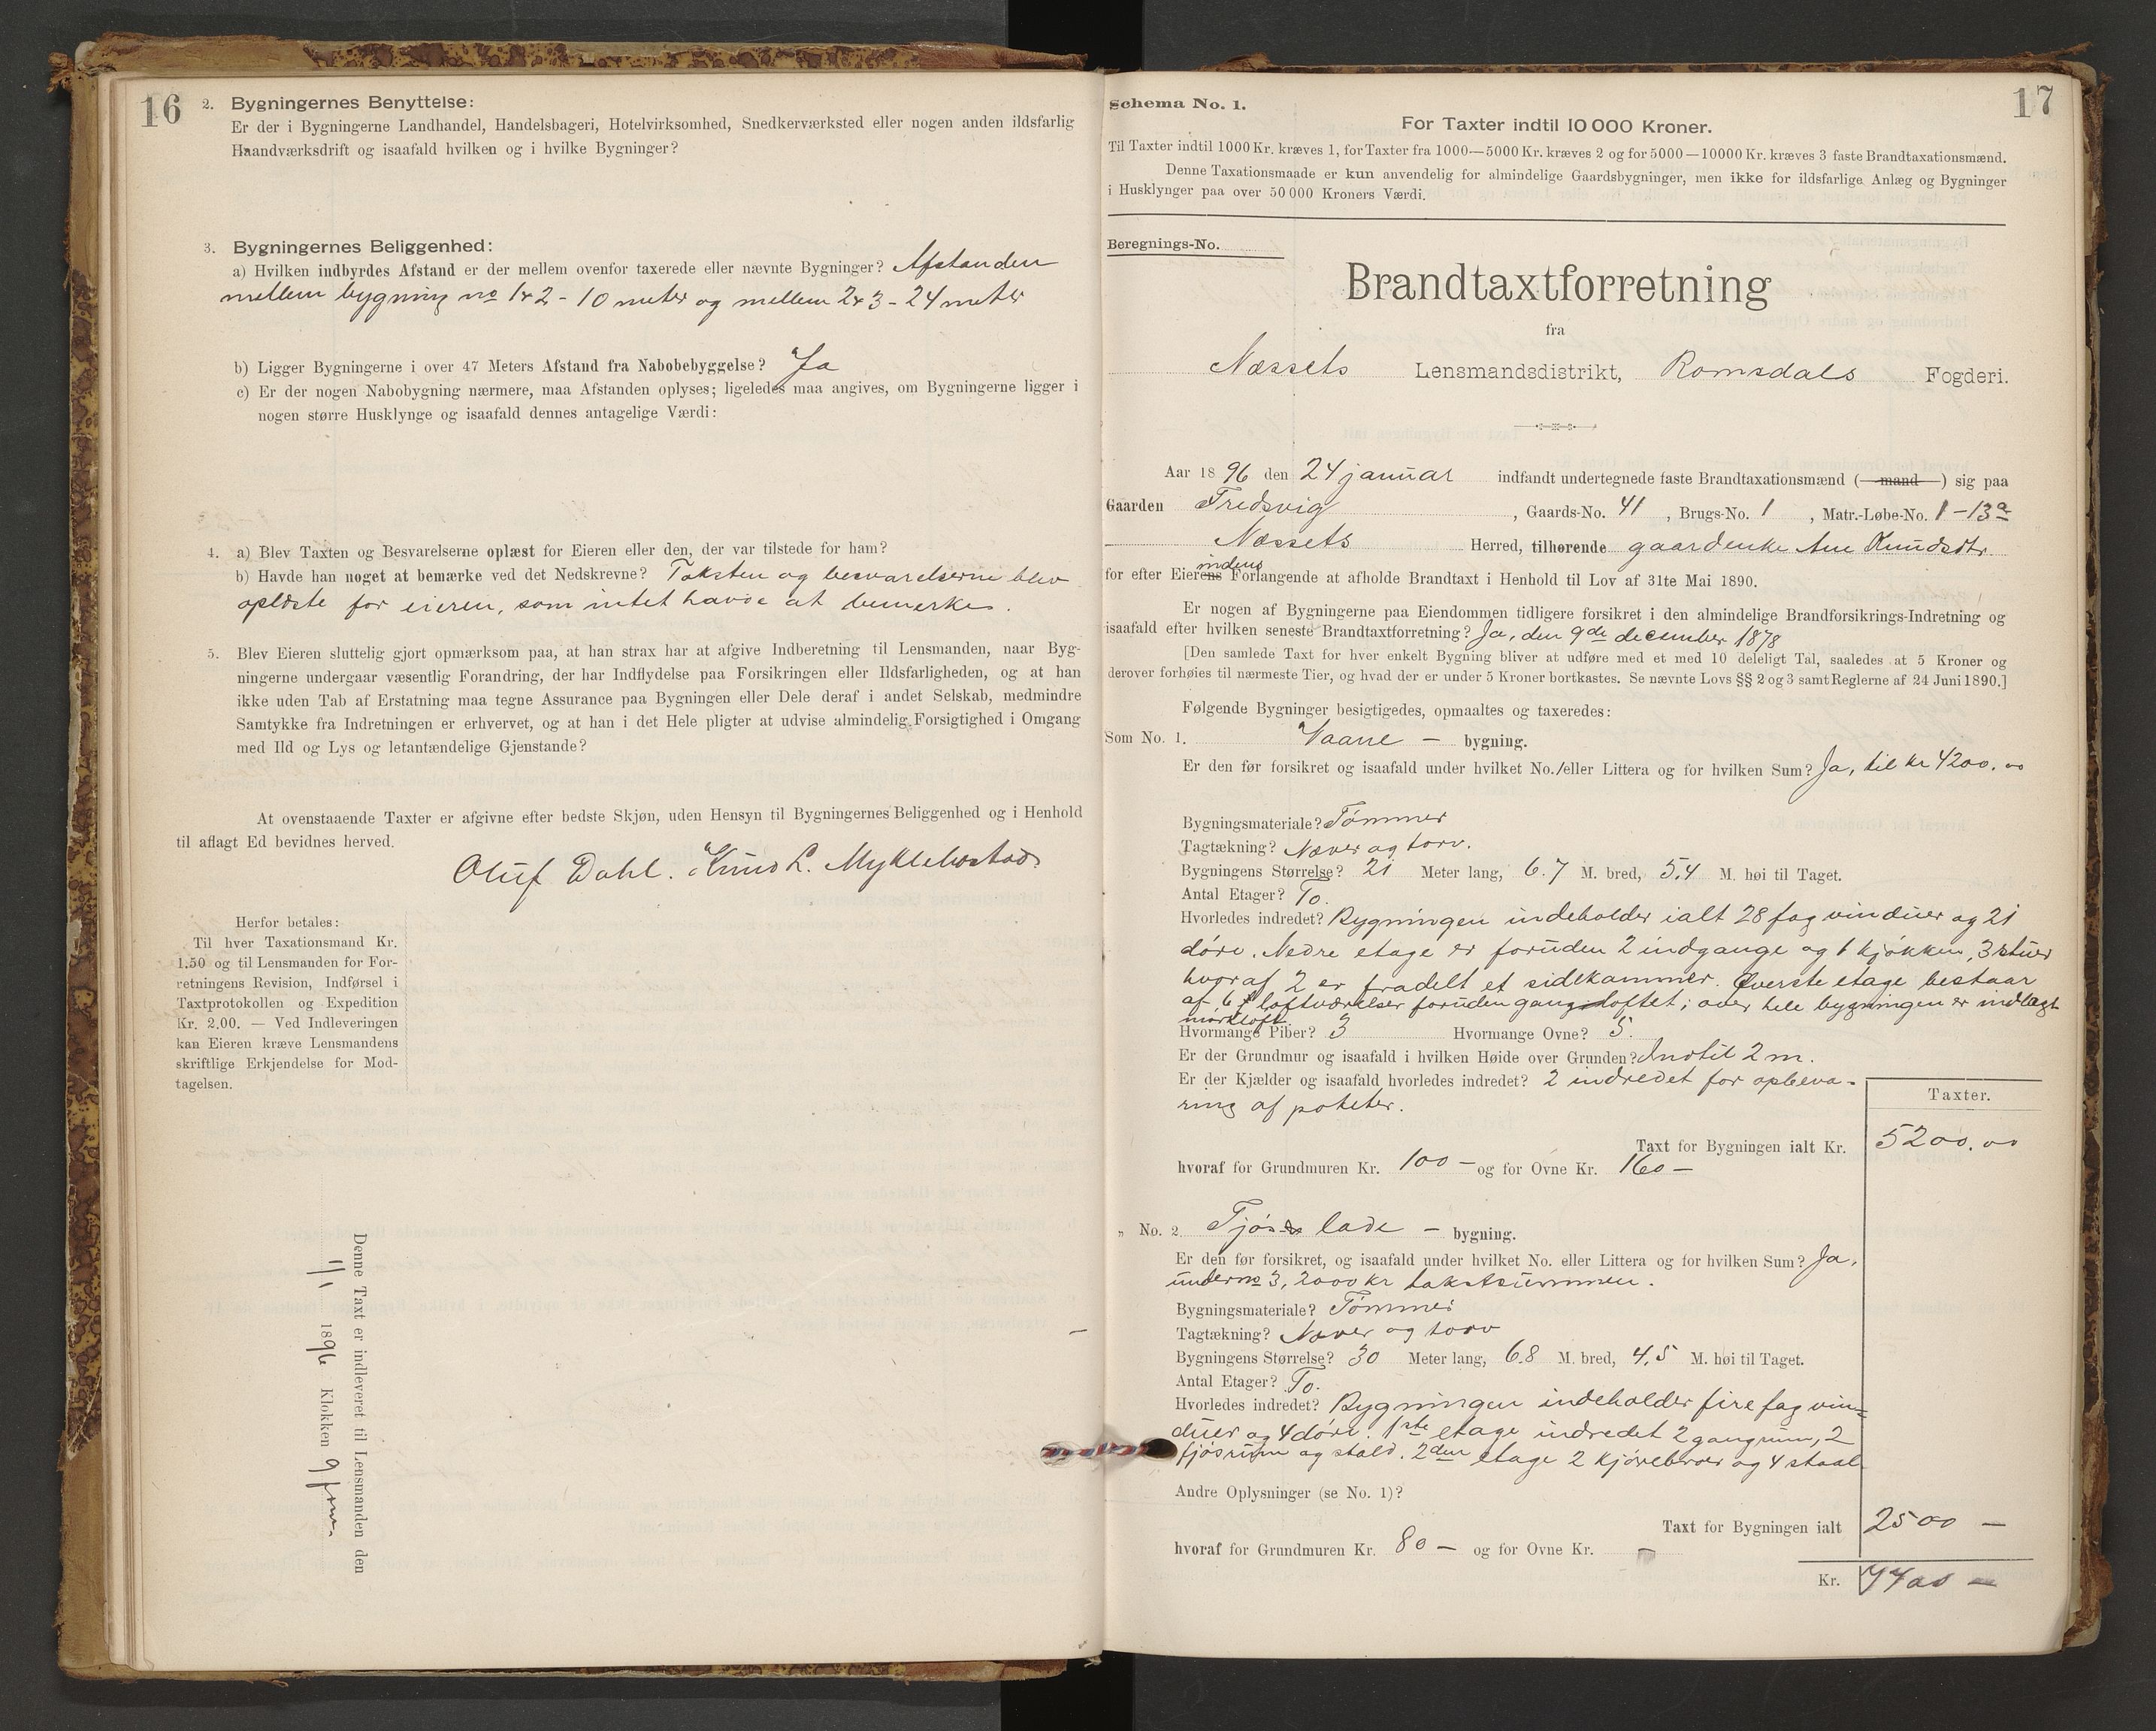 16
2. Bygningernes Benyttelse:
Er der i Bygningerne Landhandel, Handelsbageri, Hotelvirksomhed, Snedkerværksted eller nogen anden ildsfarlig
Haandværksdrift og isaafald hvilken og i hvilke Bygninger?
3. Bygningernes Beliggenhed:
a) Hvilken indbyrdes Afstand er der mellem ovenfor taxerede eller nævnte Bygninger? Afstanden
mellem bygning no 1 & 2 - 10 meter og mellem 2 & 3 - 24 meter
b) Ligger Bygningerne i over 47 Meters Afstand fra Nabobebyggelse? Ja
c) Er der nogen Nabobygning nærmere, maa Afstanden oplyses; ligeledes maa angives, om Bygningerne ligger i
nogen større Husklynge og isaafald dennes antagelige Værdi:
4. a) Blev Taxten og Besvarelserne oplæst for Eieren eller den, der var tilstede for ham?
b) Havde han noget at bemærke ved det Nedskrevne? Taksten og besvarelserne blev
oplæste for eieren, som intet havde at bemerke.
5. Blev Eieren sluttelig gjort opmærksom paa, at han strax har at afgive Indberetning til Lensmanden, naar Byg-
ningerne undergaar væsentlig Forandring, der har Indflydelse paa Forsikringen eller Ildsfarligheden, og at han
ikke uden Tab af Erstatning maa tegne Assurance paa Bygningen eller Dele deraf i andet Selskab, medmindre
Samtykke fra Indretningen er erhvervet, og at han i det Hele pligter at udvise almindelig Forsigtighed i Omgang
med Ild og Lys og letantændelige Gjenstande?
At ovenstaaende Taxter er afgivne efter bedste Skjøn, uden Hensyn til Bygningernes Beliggenhed og i Henhold
til aflagt Ed bevidnes herved.
Oluf Dahl. Knud L. Myklebostad
Herfor betales:
Til hver Taxationsmand Kr.
1.50 og til Lensmanden for For-
retningens Revision, Indførsel i
Taxtprotokollen og Expedition
Kr. 2.00. — Ved Indleveringen
kan Eieren kræve Lensmandens
skriftlige Erkjendelse for Mod-
tagelsen.
Denne Taxt er indleveret til Lensmanden den
1896 Klokken 9
17
Schema No. 1.
For Taxter indtil 10 000 Kroner.
Til Taxter indtil 1000 Kr. kræves 1, for Taxter fra 1000—5000 Kr. kræves 2 og for 5000—10000 Kr. kræves 3 faste Brandtaxationsmænd.
Denne Taxationsmaade er kun anvendelig for almindelige Gaardsbygninger, men ikke for ildsfarlige Anlæg og Bygninger
i Husklynger paa over 50 000 Kroners Værdi.
Beregnings-No.
Brandtaxtforretning
fra
Næssets Lensmandsdistrikt, Romsdals Fogderi.
Aar 1896 den 24 januar indfandt undertegnede faste Brandtaxationsmænd (—mand—) sig paa
Gaarden Fredsvig, Gaards-No. 41, Brugs-No. 1, Matr.-Løbe-No. 1-13a
Næssets Herred, tilhørende gaardenke Ane Knudsdtr.
indens
for efter Eierens Forlangende at afholde Brandtaxt i Henhold til Lov af 31te Mai 1890.
Er nogen af Bygningerne paa Eiendommen tidligere forsikret i den almindelige Brandforsikrings-Indretning og
isaafald efter hvilken seneste Brandtaxtforretning? Ja, den 9de december 1878
[Den samlede Taxt for hver enkelt Bygning bliver at udføre med et med 10 deleligt Tal, saaledes at 5 Kroner og
derover forhøies til nærmeste Tier, og hvad der er under 5 Kroner bortkastes. Se nævnte Lovs §§ 2 og 3 samt Reglerne af 24 Juni 1890.]
Følgende Bygninger besigtigedes, opmaaltes og taxeredes:
Som No. 1. Vaane - bygning.
Er den før forsikret og isaafald under hvilket No./eller Littera og for hvilken Sum? Ja, til kr 4200.00
Bygningsmateriale? Tømmer
Tagtækning? Næver og torv.
Bygningens Størrelse? 21 Meter lang, 6.7 M. bred, 5,4 M. høi til Taget.
Antal Etager? To.
Hvorledes indredet? Bygningen indeholder ialt 28 fag vinduer og 21
døre. Nedre etage er foruden 2 indgange og 1 kjøkken, 3 stuer
hvoraf 2 er fradelt et sidekammer. Øverste etage bestaar
af 6 loftværelser foruden gangloftet; over hele bygningen er indlagt
mørkloft
Hvormange Piber? 3 Hvormange Ovne? 5.
Er der Grundmur og isaafald i hvilken Høide over Grunden? Indtil 2 m.
Er der Kjælder og isaafald hvorledes indredet? 2 indredet for opbeva-
ring af poteter.
Taxter.
Taxt for Bygningen ialt Kr. 5200.00
hvoraf for Grundmuren Kr. 100 - og for Ovne Kr. 160 -
" No. 2 Fjøs & lade - bygning.
Er den før forsikret, og isaafald under hvilket No. eller Littera og for hvilken Sum? Ja,
under no 3, 2000 kr takstsummen.
Bygningsmateriale? Tømmer
Tagtækning? Næver og torv
Bygningens Størrelse? 30 Meter lang, 6.8 M. bred, 4,5 M. høi til Taget.
Antal Etager? To.
Hvorledes indredet? Bygningen indeholder fire fag vin=
duer og 4 døre. 1ste etage indredet 2 gangrum, 2
fjøsrum og stald. 2den etage 2 kjørebroer og 4 staal
Andre Oplysninger (se No. 1)?
Taxt for Bygningen ialt 2500 -
hvoraf for Grundmuren Kr. 80 - og for Ovne Kr. -
Kr. 7700 -